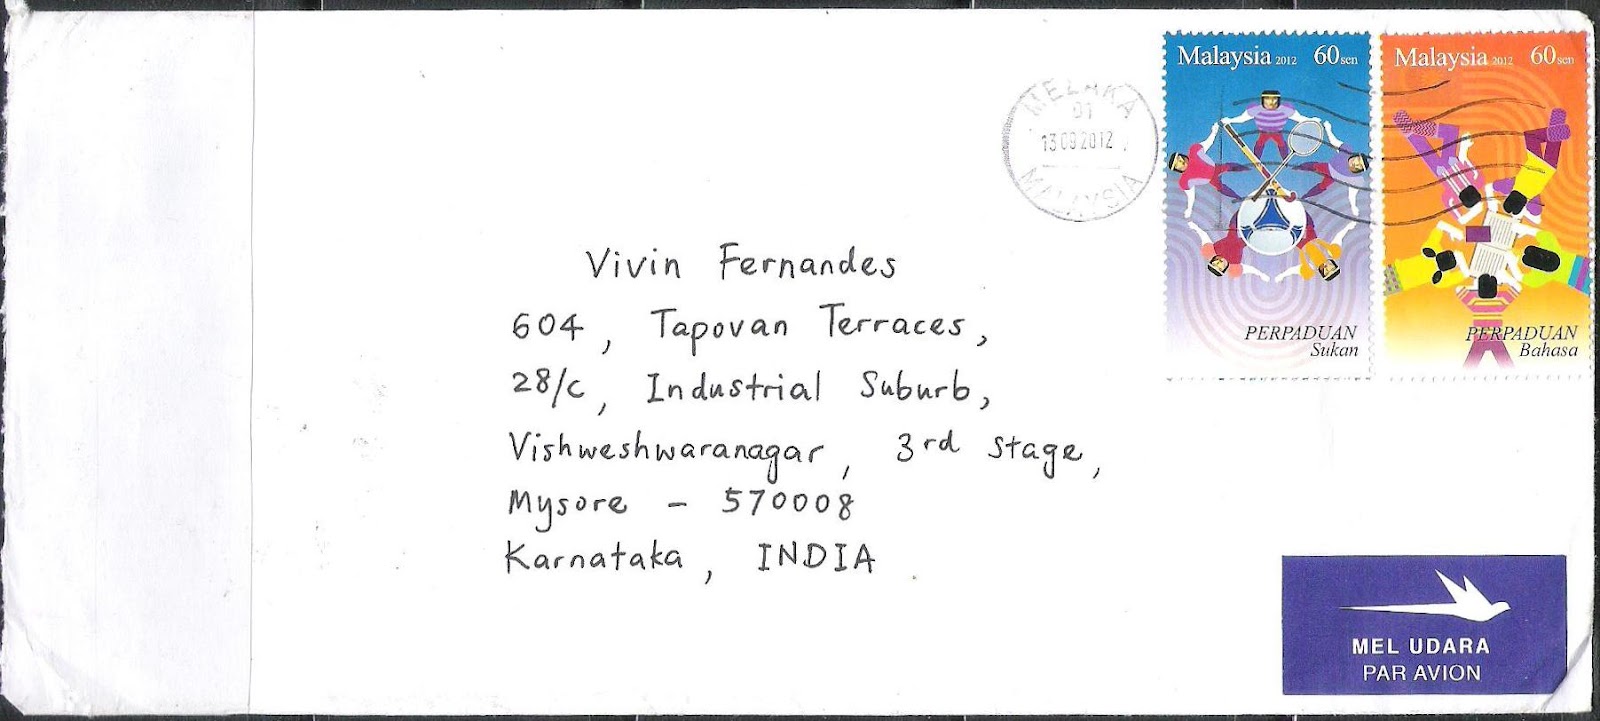 Malaysia 2012 60sen
PERPADUAN
Sukan
Malaysia 2012 60sen
PERPADUAN
Bahasa
MELAKA
01
13082012
MALAYSIA
Vivin Fernandes
604, Tapovan Terraces,
28/c, Industrial Suburb,
Vishweshwaranagar, 3rd stage,
Mysore - 570008
Karnataka, INDIA
MEL UDARA
PAR AVION